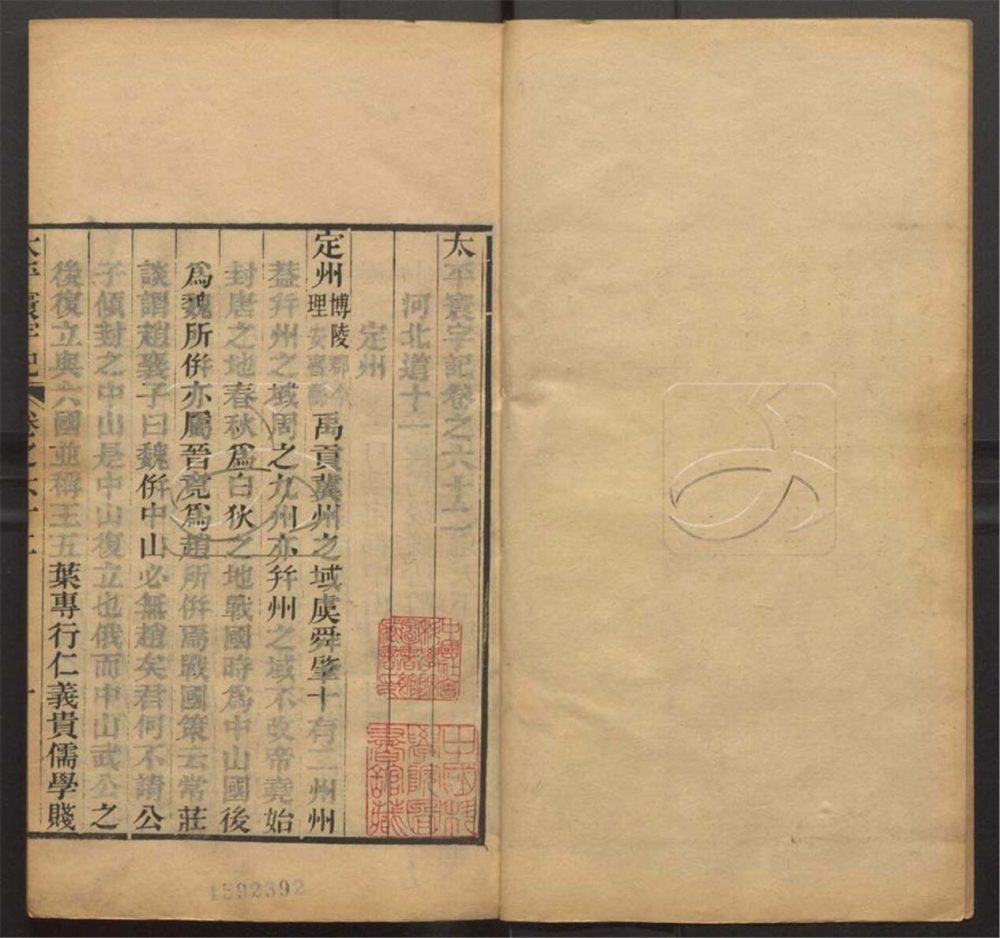 太平寰宇記卷之六十二
河北道十一
定州
定州 博陵郡今理安喜縣 禹貢冀州之域虞舜肇十有二州州
蓋幷州之域周之九州亦幷州之域不改帝堯始
封唐之地春秋爲白狄之地戰國時爲中山國後
爲魏所併亦屬晉竟爲趙所併焉戰國策云常莊
談謂趙襄子曰魏併中山必無趙矣君何不請公
子傾封之中山是中山復立也俄而中山武公之
後復立與六國並稱王五葉專行仁義貴儒學賤
太平寰宇記 卷之六十二 一
1592392